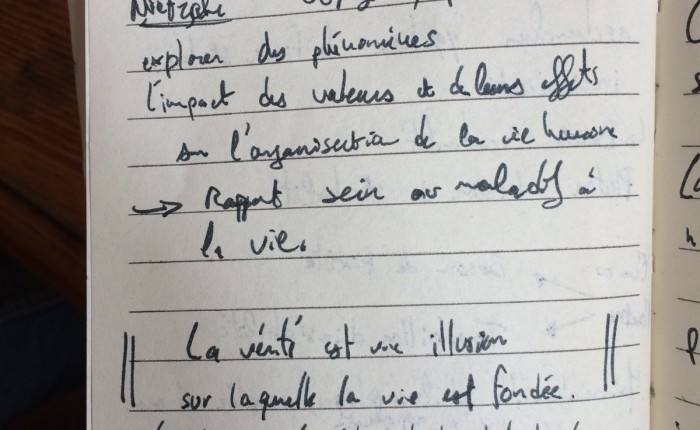 Nietzsche
explorer des phénomènes
l'impact des valeurs et de leurs effets
sur l'organisation de la vie humaine
→ Rapport sain ou maladif à
la vie.
La vérité est une illusion
sur laquelle la vie est fondée.